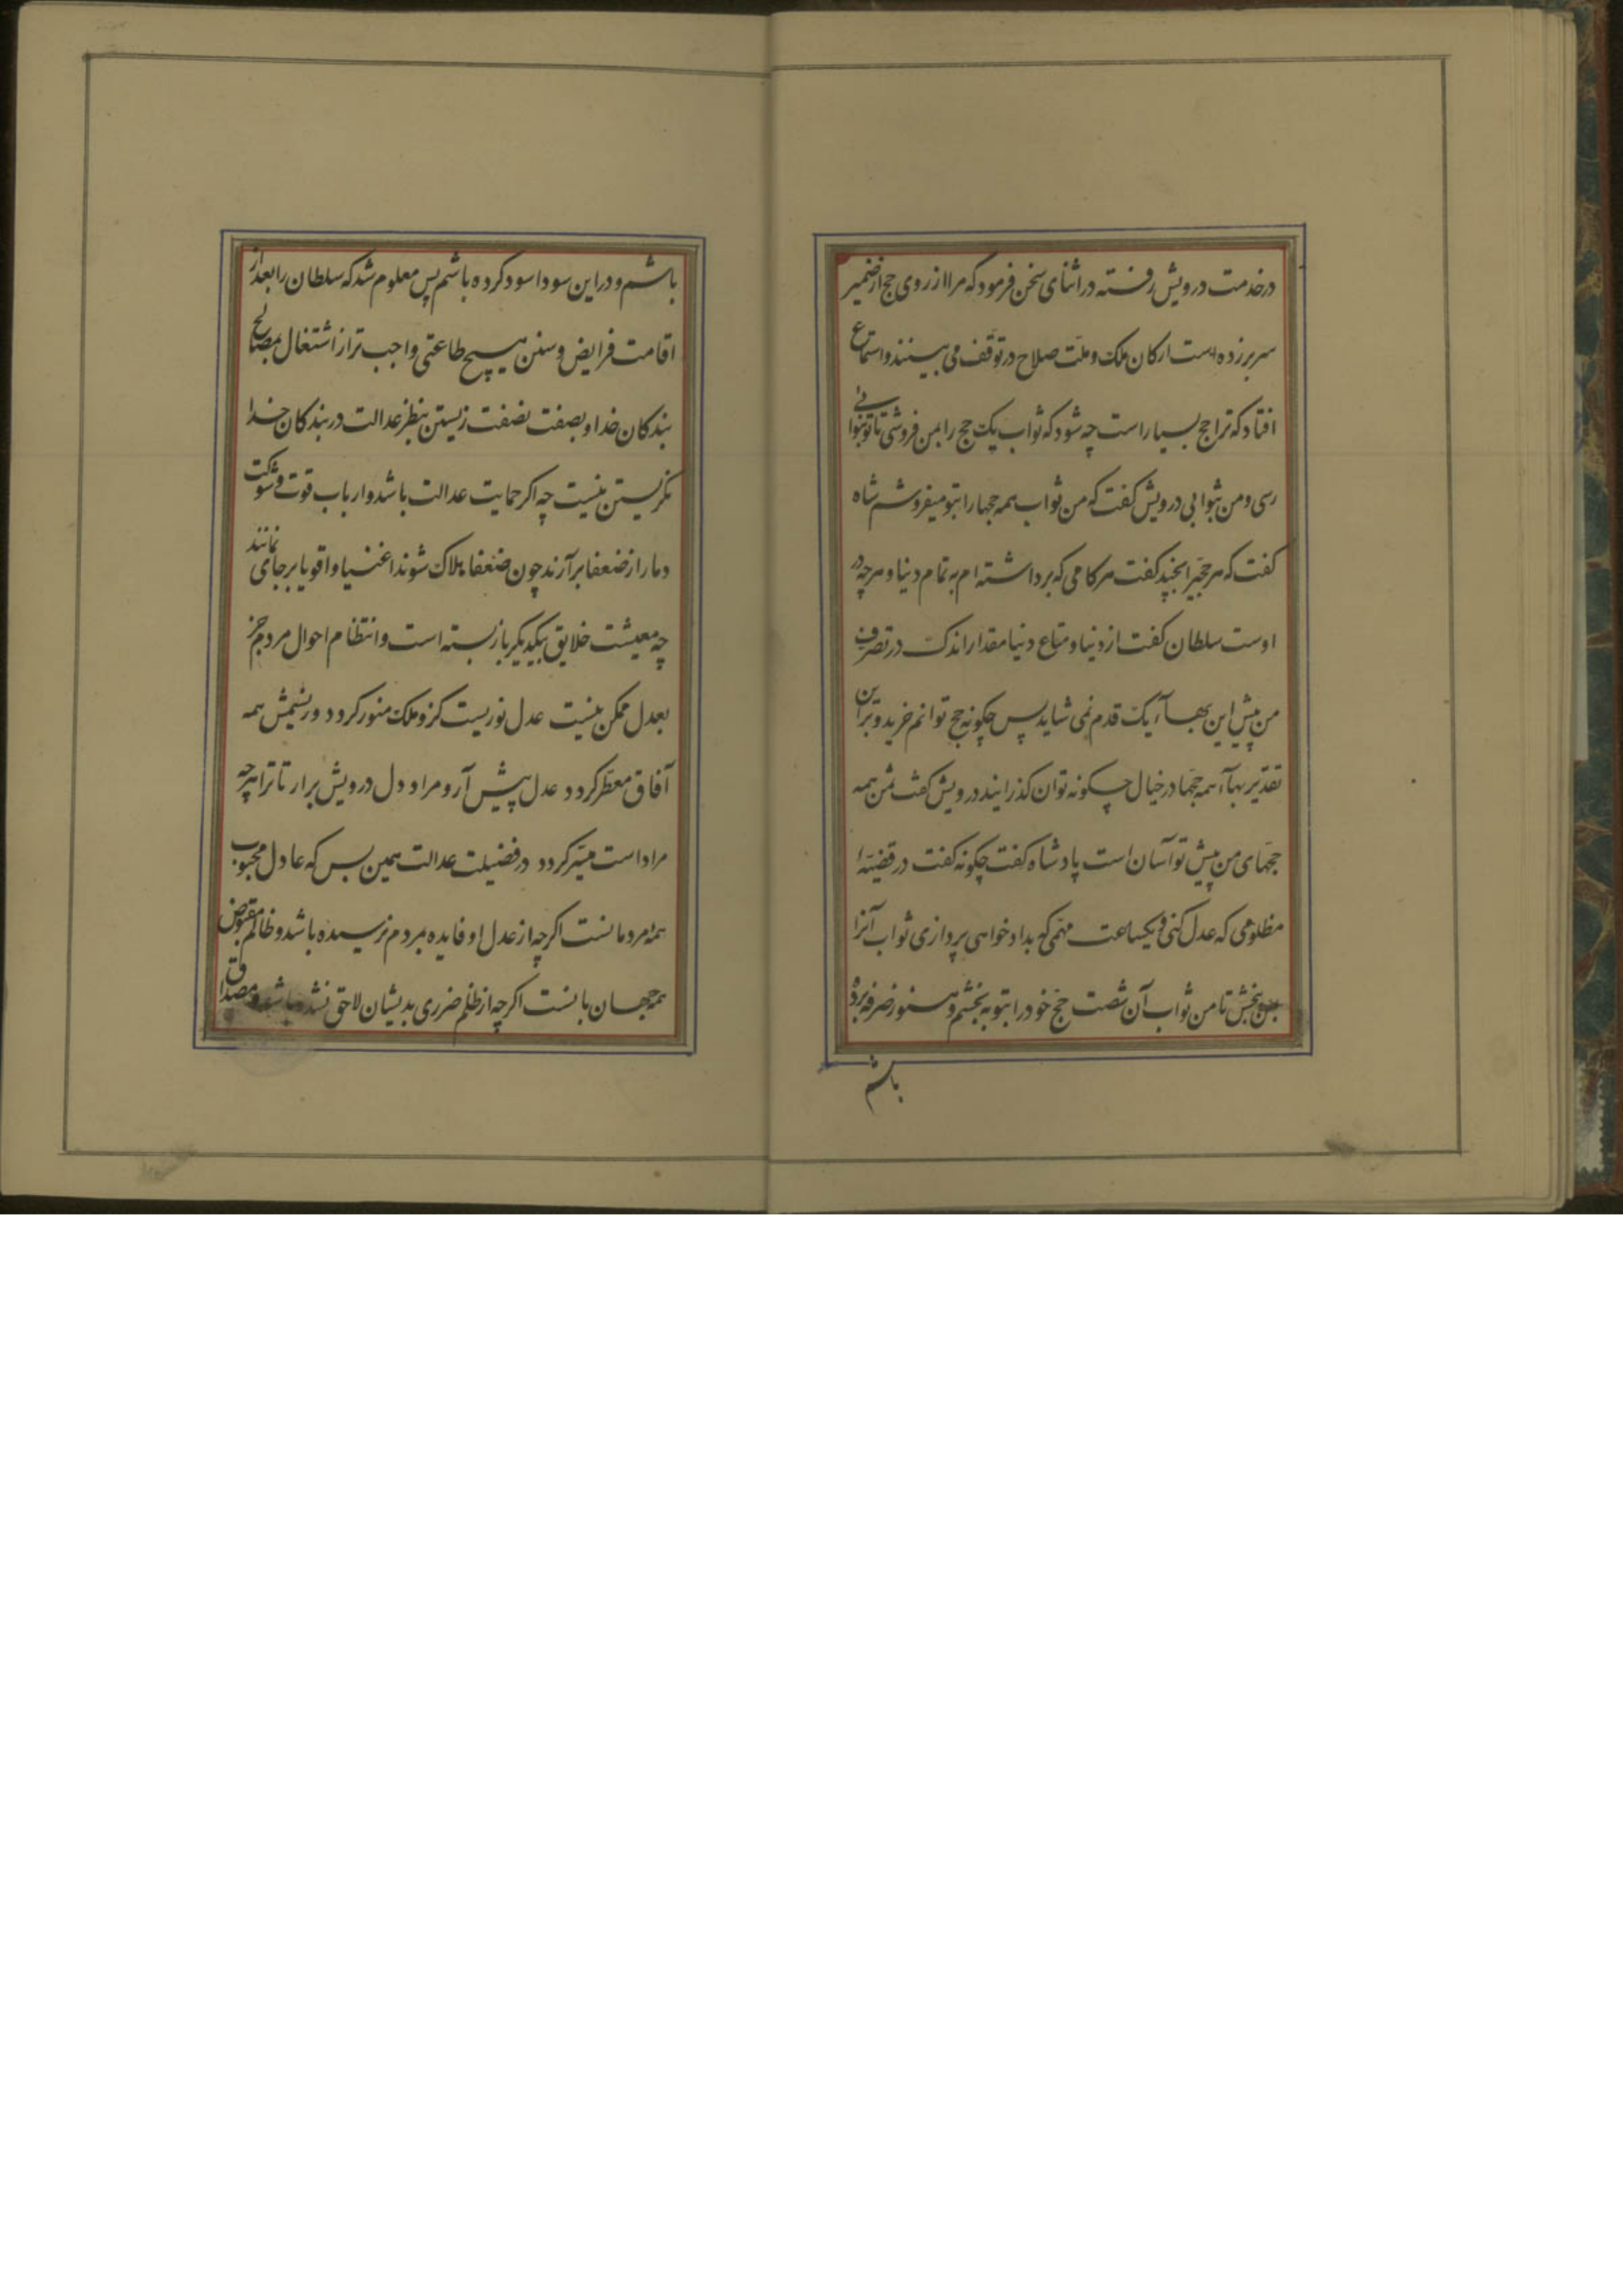 درخدمت درویش رفته در اثنای سخن فرمود که مرا ارزوی حج از ضمیر
سر بر زده است ارکان ملک و ملت صلاح در توقف می بینند و استماع
افتاد که ترا حج بسیار است چه شود که ثواب یک حج را بمن فروشی تا تو بنوائی
رسی و من بثوابی درویش کفت که من ثواب همه حجها را بتو میفروشم شاه
کفت که هر حجیرا بچند کفت هر کامی که برداشته ام به تمام دنیا و هر چه در
اوست سلطان کفت از دنیا و متاع دنیا مقدار اندک در تصرف
من پیش این بهآ یک قدم نمی شاید پس چکونه حج توانم خرید و براین
تقدیر بهآ همه حجها در خیال چکونه توان کذرانید درویش کفت ثمن همه
حجهای من پیش تو آسان است پادشاه کفت چکونه کفت در قضیّهٔ
مظلومی که عدل کنی و یکساعت مهمی که بداد خواهی پردازی ثواب آنرا
بمن بخش تا من ثواب آن شصت حج خود را بتو به بخشم و هنوز صرفه برده
باشم
باشم و در این سودا سود کرده باشم پس معلوم شد که سلطان را بعد از
اقامت فرایض و سنن هیچ طاعتی واجب تر از اشتغال بمصالح
بندکان خدا و بصفت نصفت زیستن بنظر عدالت در بندکان خدا
نکریستن نیست چه اکر حمایت عدالت باشد و ارباب قوت و شوکت
دمار از ضعفا برآرند چون ضعفا هلاک شوند اغنیا و اقویا بر جای نمانند
چه معیشت خلایق بیکدیکر باز بسته است و انتظام احوال مردم جز
بعدل ممکن نیست عدل نوریست کزو ملک منور کردد ور نسیمش همه
آفاق معطر کردد عدل پیش آر و مراد دل درویش برار تا ترا هر چه
مراد است میسر کردد در فضیلت عدالت همین بس که عادل محبوب
همه مردمانست اکر چه از عدل او فایده بمردم نرسیده باشد و ظالم مبغوض
همه جهانیانست اکر چه از ظلم ضرری بدیشان لاحق نشده باشد و مصداق